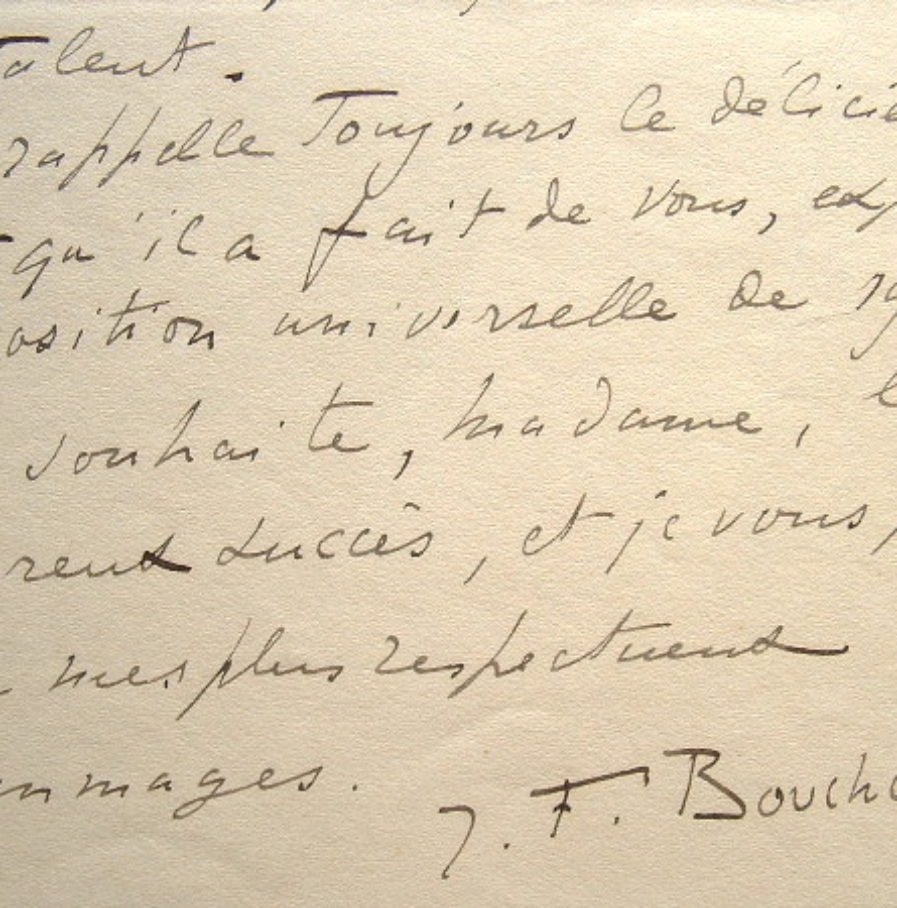 Talent.
rappelle Toujours le délicie
qu'il a fait de vous, exp
osition universelle de 19
souhaite, madame, l
reux succès, et je vous,
mes plus respectueux
ommages. J. F. Boucho